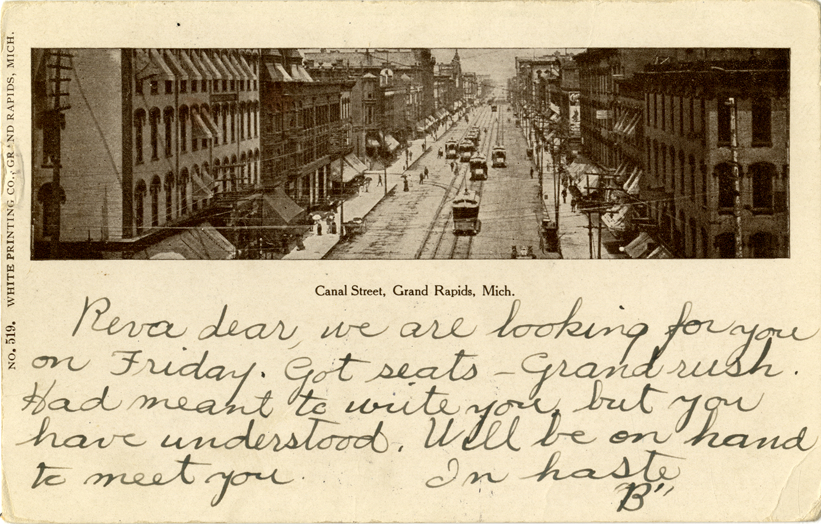 NO. 519. WHITE PRINTING CO., GRAND RAPIDS, MICH.
Canal Street, Grand Rapids, Mich.
Reva dear, we are looking for you
on Friday. Got seats – Grand rush.
Had meant to write you, but you
have understood. Will be on hand
to meet you. In haste
"B"